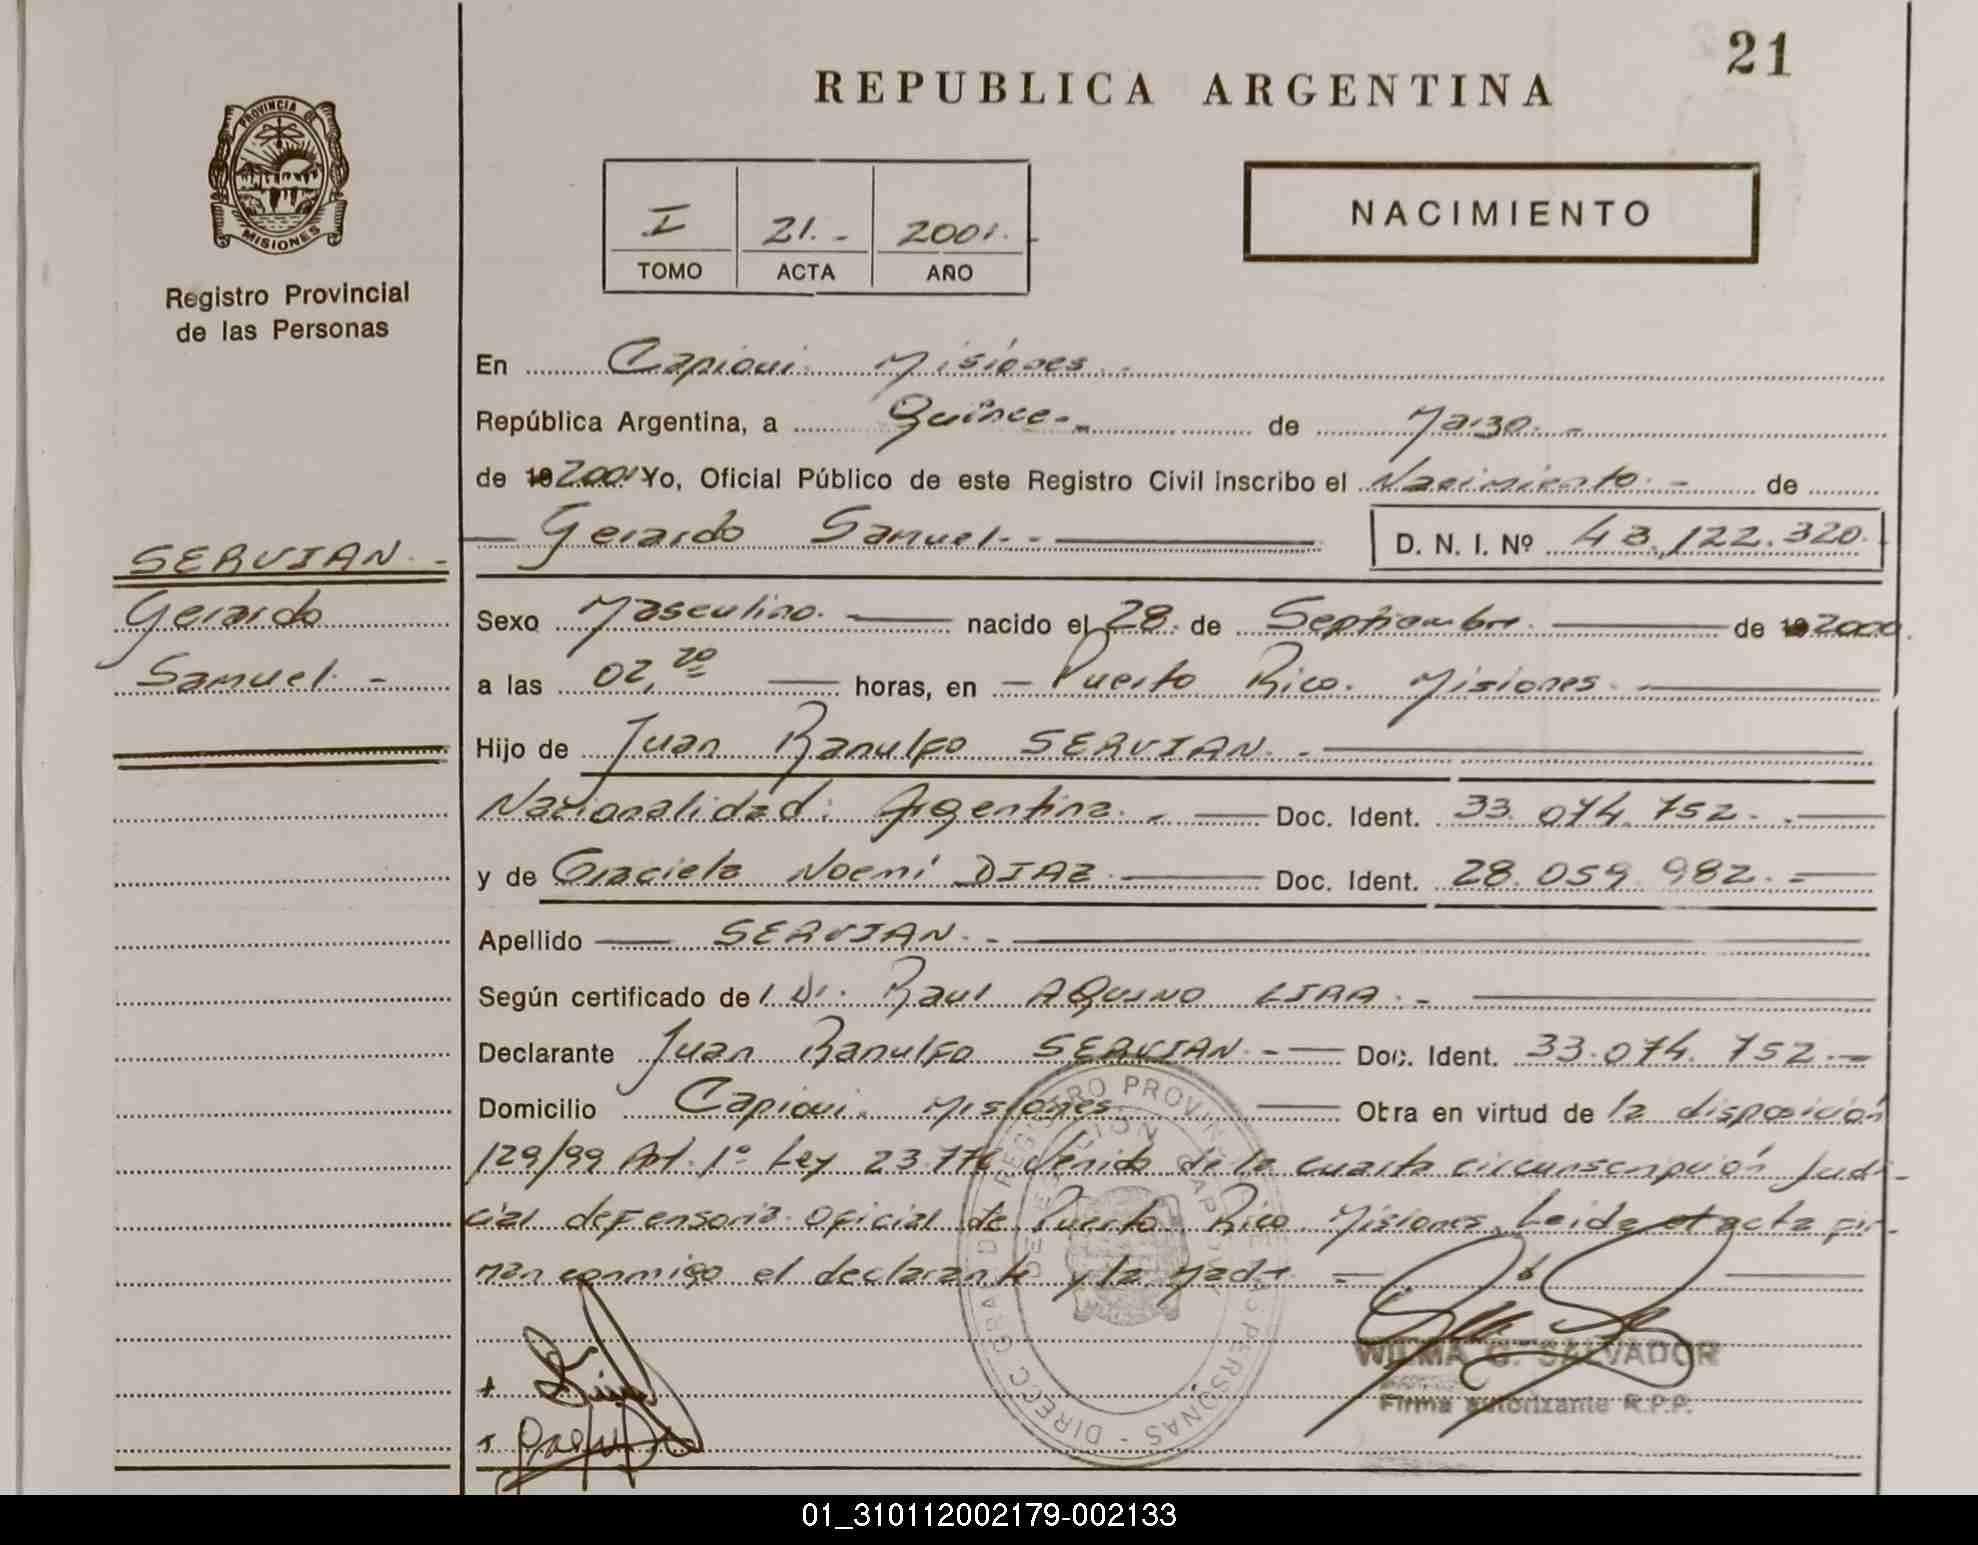 21
REPUBLICA ARGENTINA
PROVINCIA DE
MISIONES
Registro Provincial
de las Personas
I 21.- 2001.-
TOMO ACTA AÑO
NACIMIENTO
En Capioui. Misiones.-
República Argentina, a Quince.- de Marzo.-
de 19 2001 Yo, Oficial Público de este Registro Civil inscribo el Nacimiento.- de
Gerardo Samuel.- D. N. I. Nº 43.122.320.
SERVIAN.-
Gerardo
Samuel.-
Sexo Masculino. nacido el 28. de Septiembre. de 19 2000.
a las 02,20 horas, en Puerto Rico. Misiones.
Hijo de Juan Ranulfo SERVIAN.-
Nacionalidad: Argentina.- Doc. Ident. 33.074.752.-
y de Graciela Noemí DIAZ. Doc. Ident. 28.059.982.-
Apellido SERVIAN.-
Según certificado de l Dr. Raul AQUINO LIRA.-
Declarante Juan Ranulfo SERVIAN.- Doc. Ident. 33.074.752.-
Domicilio Capioui. Misiones. Obra en virtud de la disposición
129/99 Art. 1º Ley 23.776 Venido de la cuarta circunscripción Judi-
cial defensoria oficial de Puerto Rico. Misiones. Leida el acta fir-
man conmigo el declarante y la Madre.=
WILMA G. SALVADOR
Firma autorizante R.P.P.
01_310112002179-002133